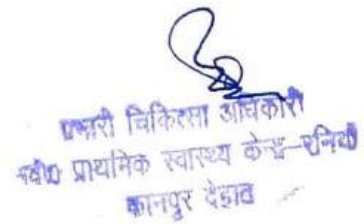 प्रभारी चिकित्सा अधिकारी
नवीन प्राथमिक स्वास्थ्य केन्द्र-रनियाँ
कानपुर देहात